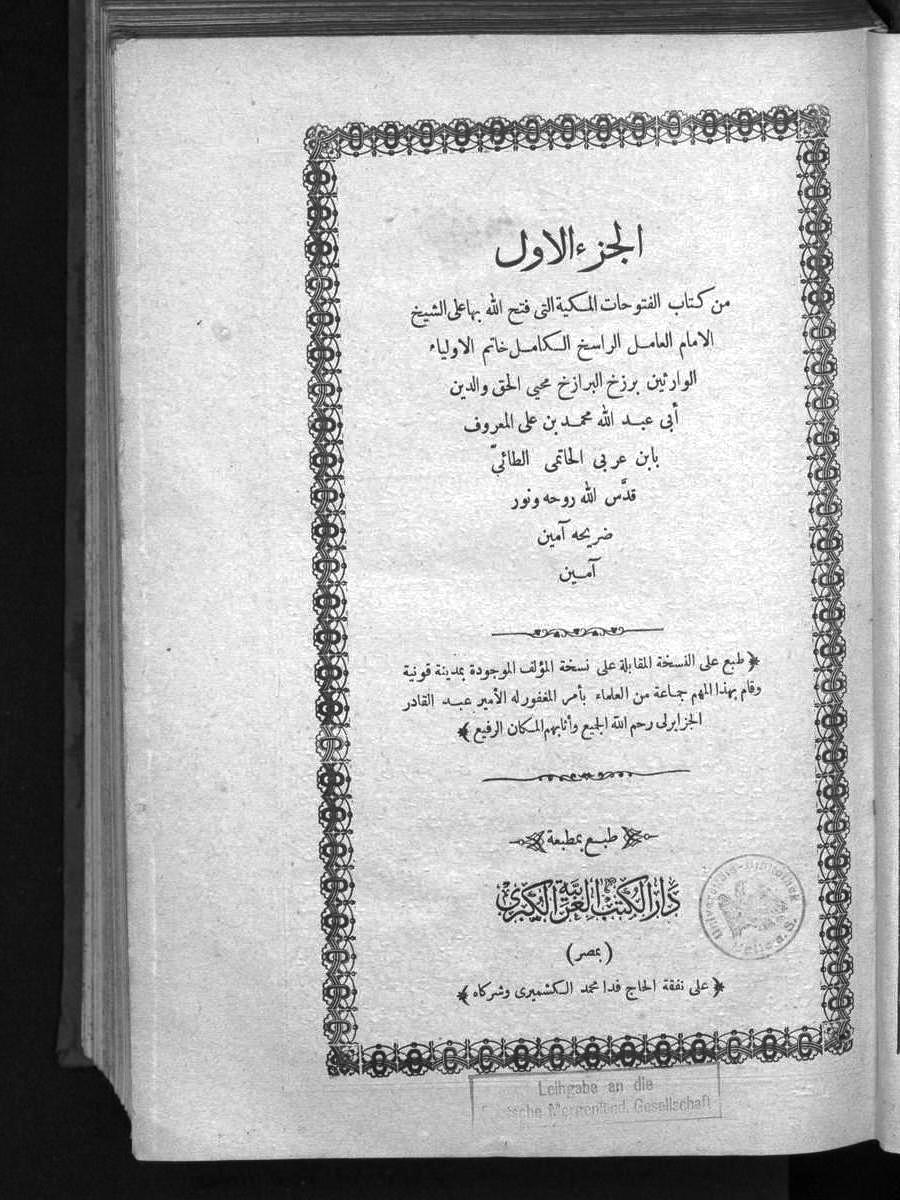 الجزء الاول
من كتاب الفتوحات المكية التى فتح الله بها على الشيخ
الامام العامل الراسخ الكامل خاتم الاولياء
الوارثين برزخ البرازخ محيي الحق والدين
أبى عبد الله محمد بن على المعروف
بابن عربى الحاتمى الطائىّ
قدَّس الله روحه ونور
ضريحه آمين
آمين
﴿ طبع على النسخة المقابلة على نسخة المؤلف الموجودة بمدينة قونية
وقام بهذا المهم جماعة من العلماء بأمر المغفور له الأمير عبد القادر
الجزايرلى رحم الله الجميع وأثابهم المكان الرفيع ﴾
طبع بمطبعة
دار الكتب العربية الكبرى
(بمصر)
﴿ على نفقة الحاج فدا محمد الكشميرى وشركاه ﴾
Universitäts-Bibliothek
Halle a. S.
Leihgabe an die
Morgenländ. Gesellschaft